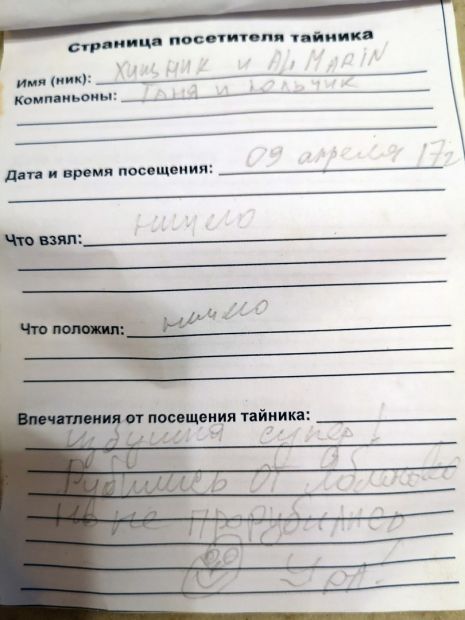 Страница посетителя тайника
Имя (ник): ХИЩНИК И Al MARIN
Компаньоны: ТАНЯ И ЮЛЬЧИК
Дата и время посещения: 09 апреля 17г
Что взял: ничего
Что положил: ничего
Впечатления от посещения тайника:
избушка супер!
Рубились от
Но не прорубились
УРА!